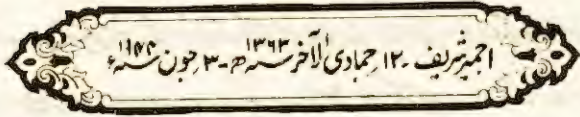 اجمیر شریف ۔ ۱۲؍جمادی الآخر ۱۳۶۳؁ھ ۔ ۳؍جون ۱۹۴۴؁ء